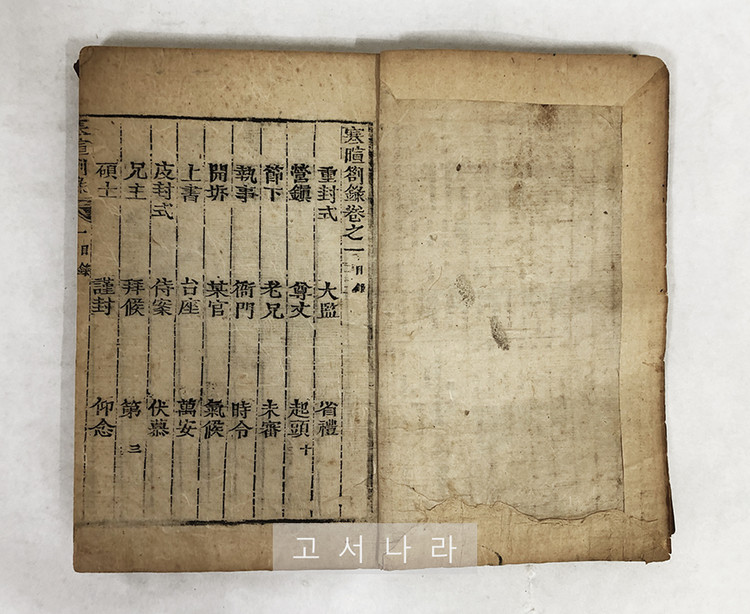 寒暄劄錄卷之一 目錄
重封式 大監 省禮
營鎭 尊丈 起頭十
節下 老兄 未審
執事 衙門 時令
開坼 某官 氣候
上書 台座 萬安
皮封式 侍案 伏慕
兄主 拜候 第三
碩士 謹封 仰念
一 目錄
고서나라